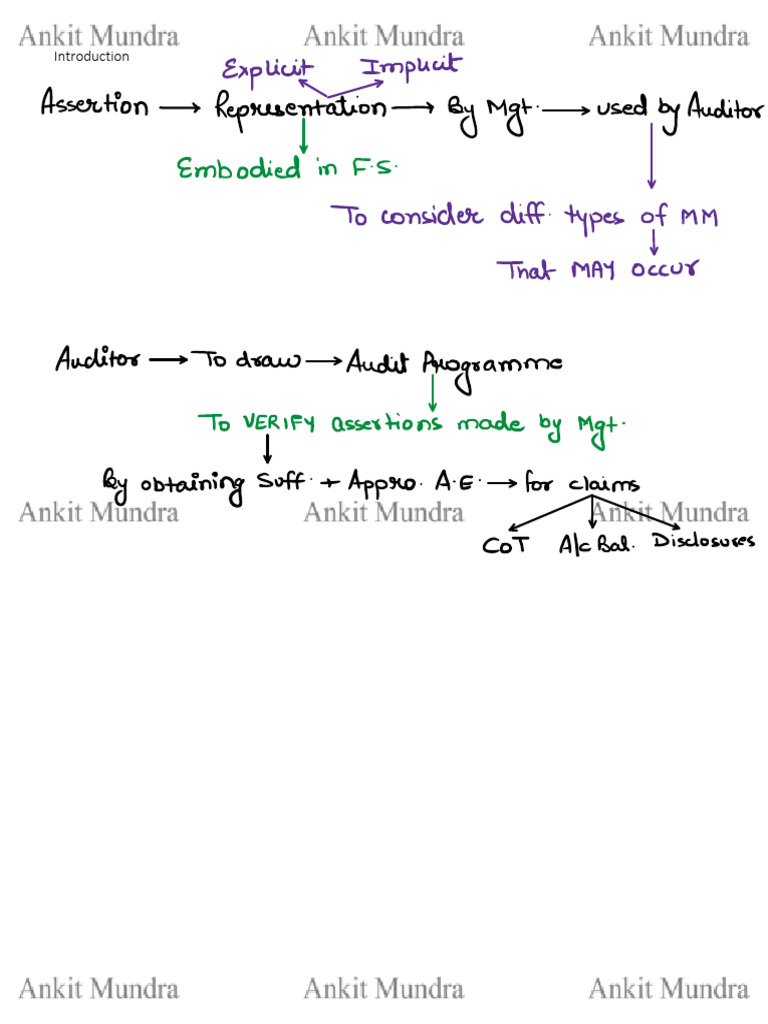 Ankit Mundra Ankit Mundra Ankit Mundra
Introduction
Explicit Implicit
Assertion → Representation → By Mgt. → used by Auditor
Embodied in F.S.
To consider diff. types of MM
That MAY occur
Auditor → To draw → Audit Programme
To VERIFY assertions made by Mgt.
By obtaining Suff. + Appro. A.E. → for claims
Ankit Mundra Ankit Mundra Ankit Mundra
CoT A/c Bal. Disclosures
Ankit Mundra Ankit Mundra Ankit Mundra